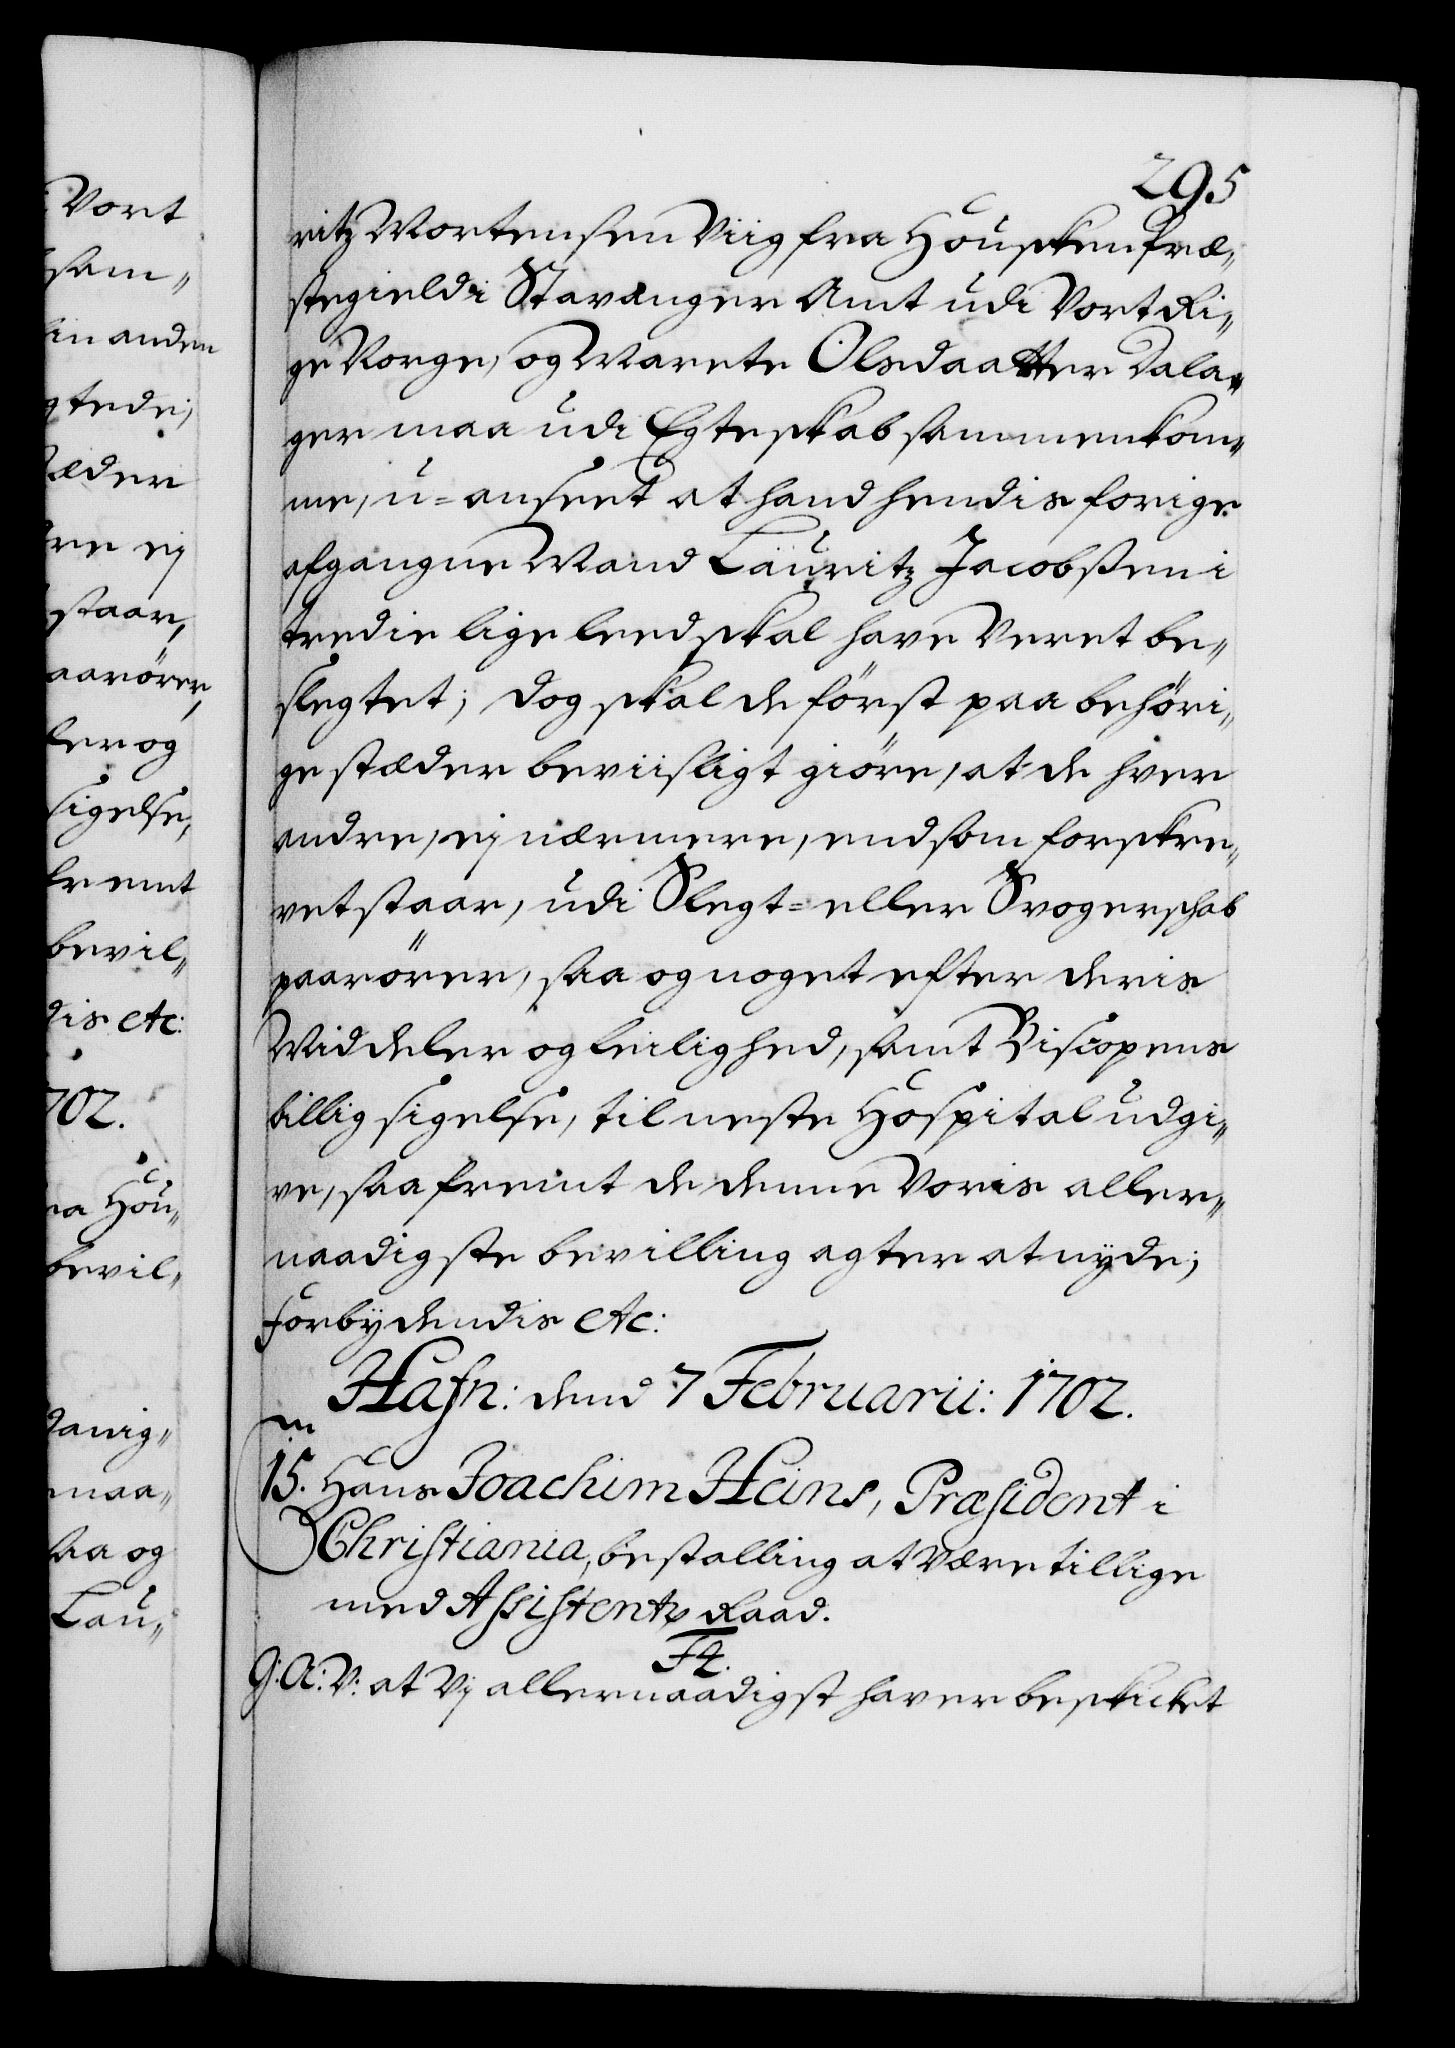 Vort
sam„
in anden
gtede;
tæder
dre ej
staar,
aarörer,
ler og
sigelse,
fremt
bevil„
dis etc:
702.
ra Hou„
bevil„
danig„
maa„
saa og
Lau„
295
ritz Mortensen Viig fra Houschen Præ„
stegield i Stavanger Amt udi Vort Ri„
ge Norge, og Marete Olsdaatter Dala„
ger maa udi Egteskab sammenkom„
me, u=anseet at hand hendis forige
afgangne Mand Lauritz Jacobsen i
tredie lige leed skal have Veret be„
slegtet; dog skal de först paa behöri„
ge stæder beviisligt giöre, at de hver
andre, ej nærmere, end som forskre„
vet staar, udi Slegt= eller Svogerschab
paarörer, saa og noget efter deris
Middeler og leilighed, samt Biscopens
billig sigelse, til neste Hospital udgi„
ve, saafremt de denne Voris aller„
naadigste bevilling agter at nyde;
Forbydendis etc:
Hafn: dend 7 Februarii: 1702.
15. Hans Joachim Heins, Præsident i
Christiania, bestalling at være tillige
med Assistentz Raad.
F4.
G: A: V: at Vj allernaadigst haver beskicket